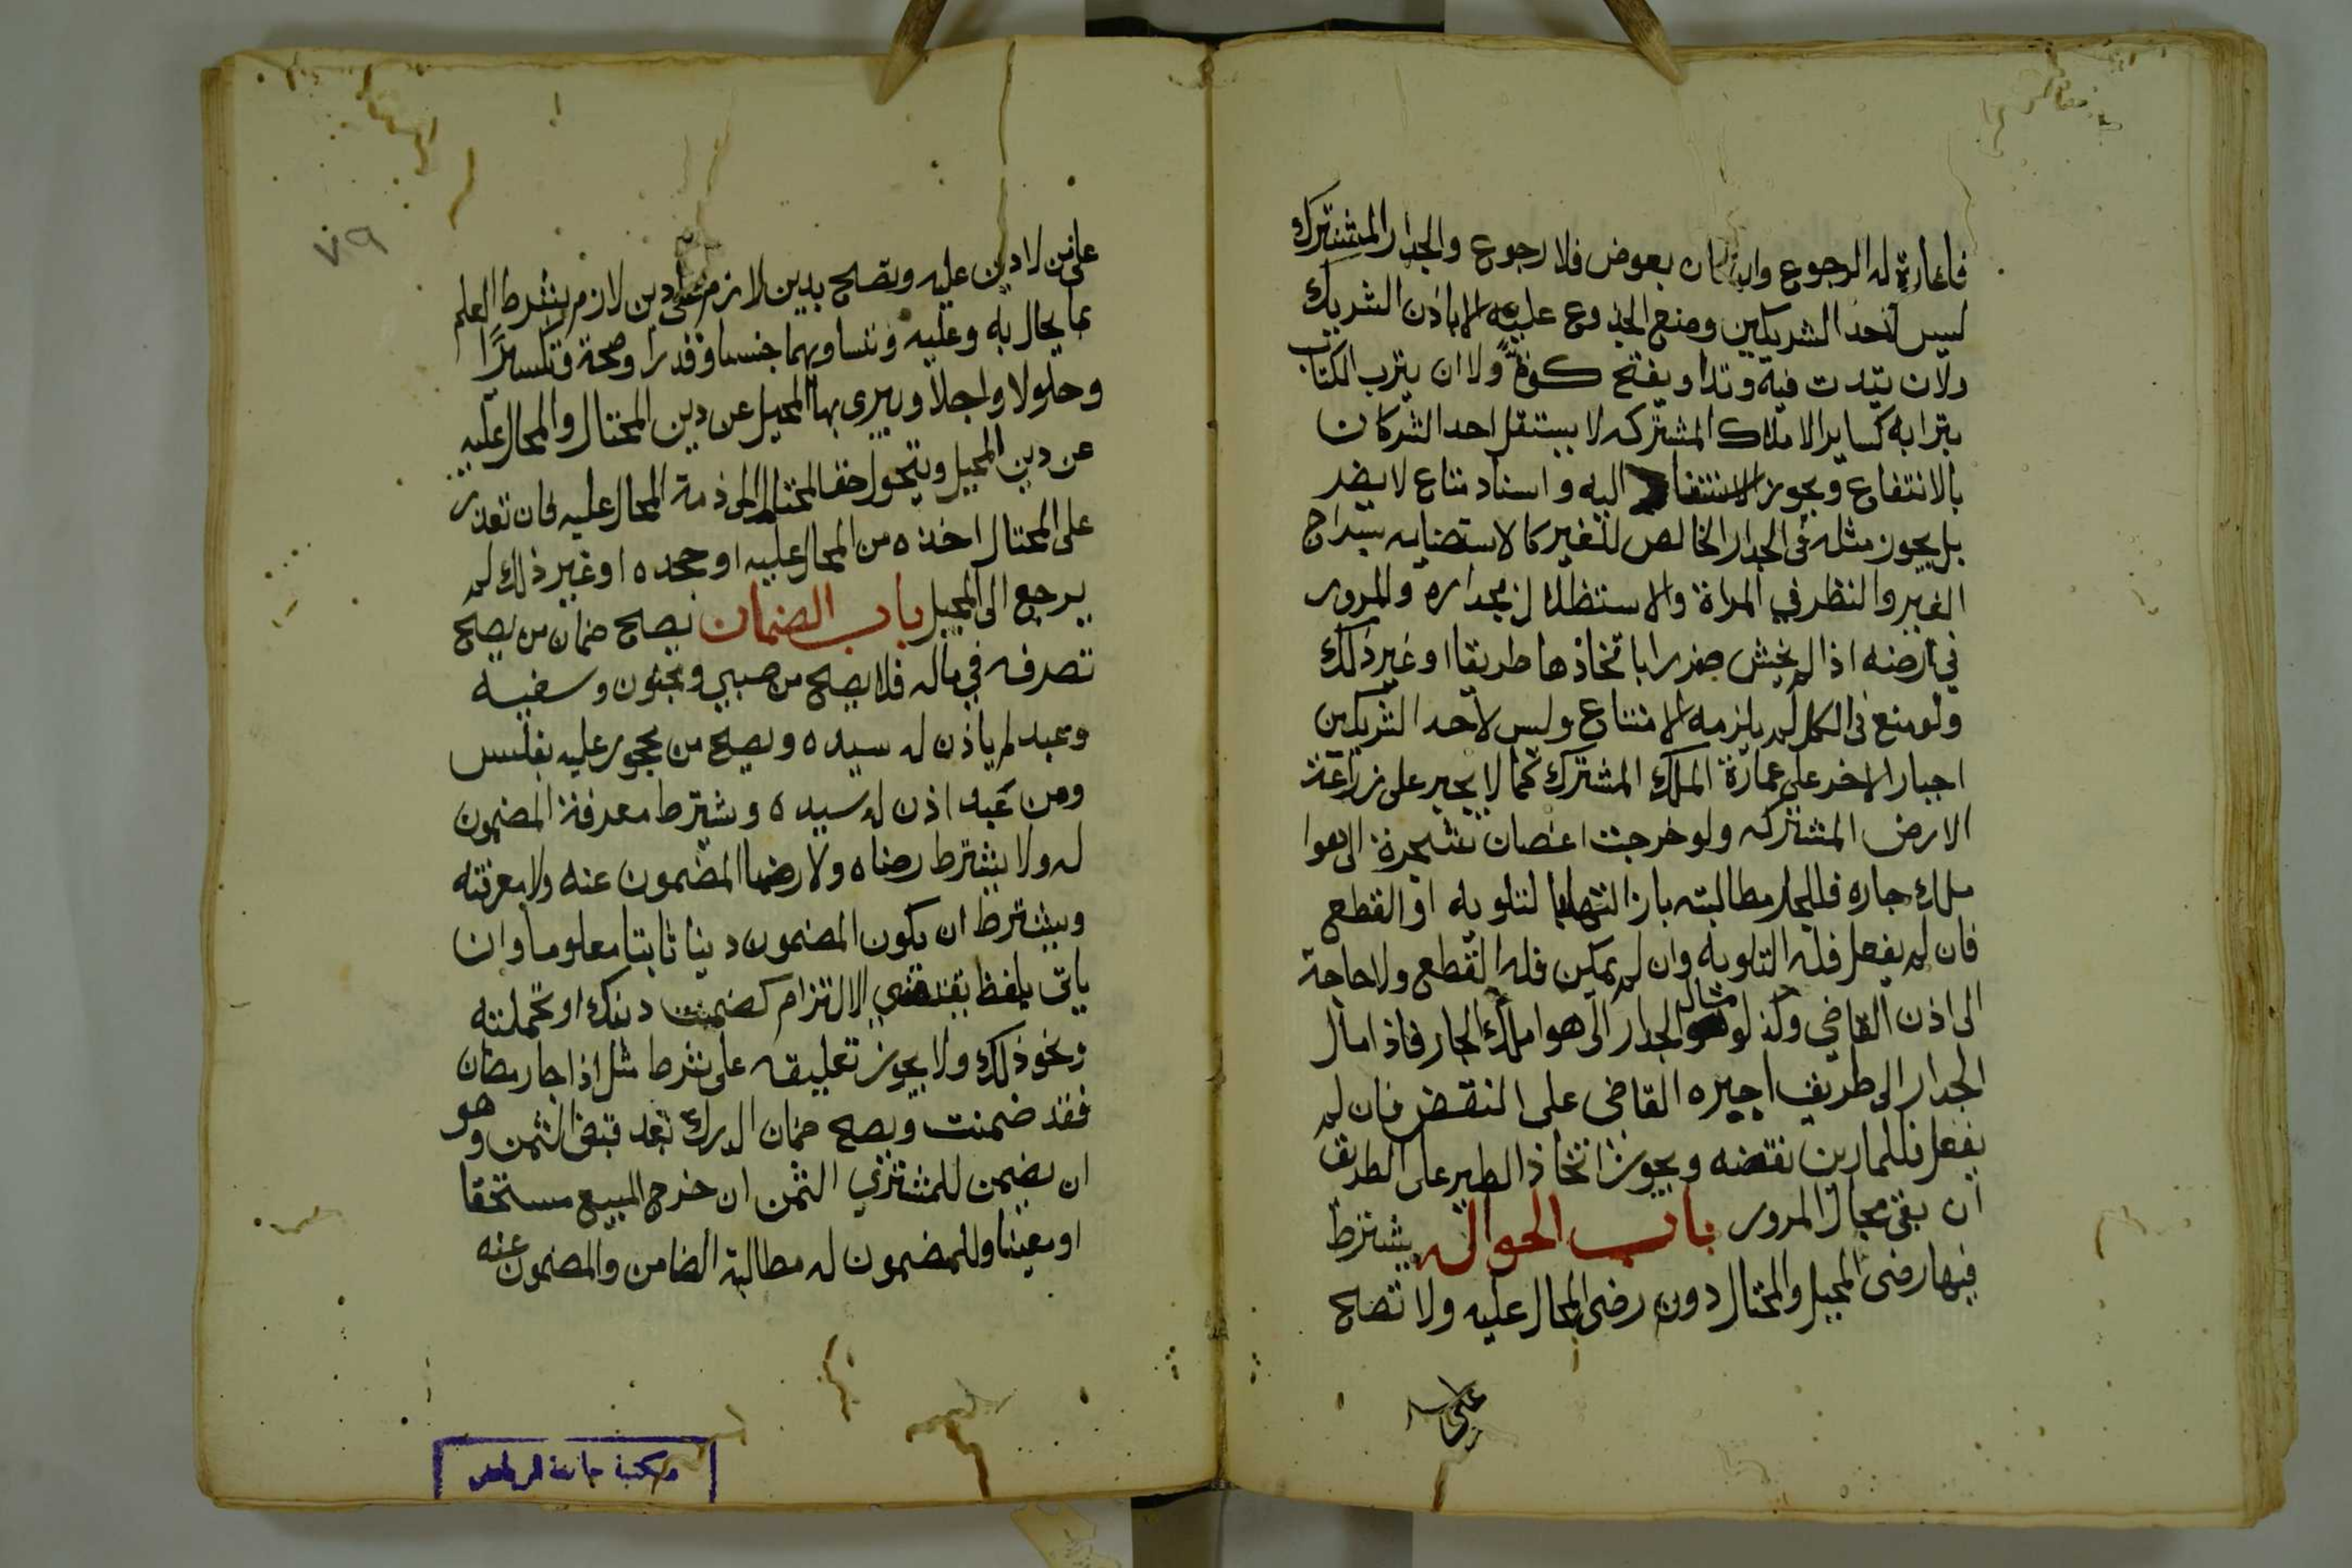 فاعارة له الرجوع وان كان بعوض فلا رجوع والجدار المشترك
ليس لاحد الشريكين وضع الجذوع عليه الا باذن الشريك
ولان يتدت فيه وتدا او يفتح كوة ولا ان يترب الكتاب
بترابه كساير الاملاك المشتركه لا يستقل احد الشركان
بالانتفاع ويجوز الاستناد اليه واسناد متاع لا يضر
بل يجوز مثله في الجدار الخالص للغير كالاستضايه بسراج
الغير والنظر في المراة والاستظلال بجداره والمرور
في ارضه اذا لم يخش ضررا باتخاذها طريقا او غير ذلك
ولو منع في الكل لم يلزمه الامتناع وليس لاحد الشريكين
اجبار الاخر على عمارة الملك المشترك كما لا يجبر على زراعة
الارض المشتركه ولو خرجت اغصان شجرة الى هوا
ملك جاره فللجار مطالبته بازالتها لتلويه او القطع
فان لم يفعل فله التلويه وان لم يمكن فله القطع ولا حاجة
الى اذن القاضي وكذا لو مال الجدار الى هوا ملك الجار فاذا مال
الجدار الى طريق اجبره القاضي على النقض فان لم
يفعل فللمارين نقضه ويجوز اتخاذ الطير على الطريق
ان بقي مجال المرور باب الحواله يشترط
فيها رضى المحيل والمحتال دون رضى المحال عليه ولا تصح
على
٧٩
على من لا دين عليه وتصح بدين لازم على دين لازم بشرط العلم
بما يحال به وعليه وتساويهما جنسا وقدرا وصحة وتكسيرًا
وحلولا واجلا ويبرى بها المحيل عن دين المحتال والمحال عليه
عن دين المحيل ويتحول حق المحتال الى ذمة المحال عليه فان تعذر
على المحتال اخذه من المحال عليه او جحده او غير ذلك لم
يرجع الى المحيل باب الضمان يصح ضمان من يصح
تصرفه في ماله فلا يصح من صبي ومجنون وسفيه
وعبد لم ياذن له سيده ويصح من محجور عليه بفلس
ومن عبد اذن له سيده ويشترط معرفة المضمون
له ولا يشترط رضاه ولا رضا المضمون عنه ولا معرفته
ويشترط ان يكون المضمون دينا ثابتا معلوما وان
ياتي بلفظ يقتضي الالتزام كضمنت دينك او تحملته
ونحو ذلك ولا يجوز تعليقه على شرط مثل اذا جا رمضان
فقد ضمنت ويصح ضمان الدرك بعد قبض الثمن وهو
ان يضمن للمشتري الثمن ان خرج المبيع مستحقا
او معيبا وللمضمون له مطالبة الضامن والمضمون عنه
مكتبة جامعة الرياض